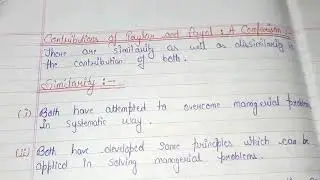 Contributions of Taylor and Fayol : A Comparison
There are similarity as well as dissimilarity in
the contribution of both.
Similarity :-
(i) Both have attempted to overcome manegerial problems
in systematic way.
(ii) Both have developed some principles which can be
applied in solving managerial problems